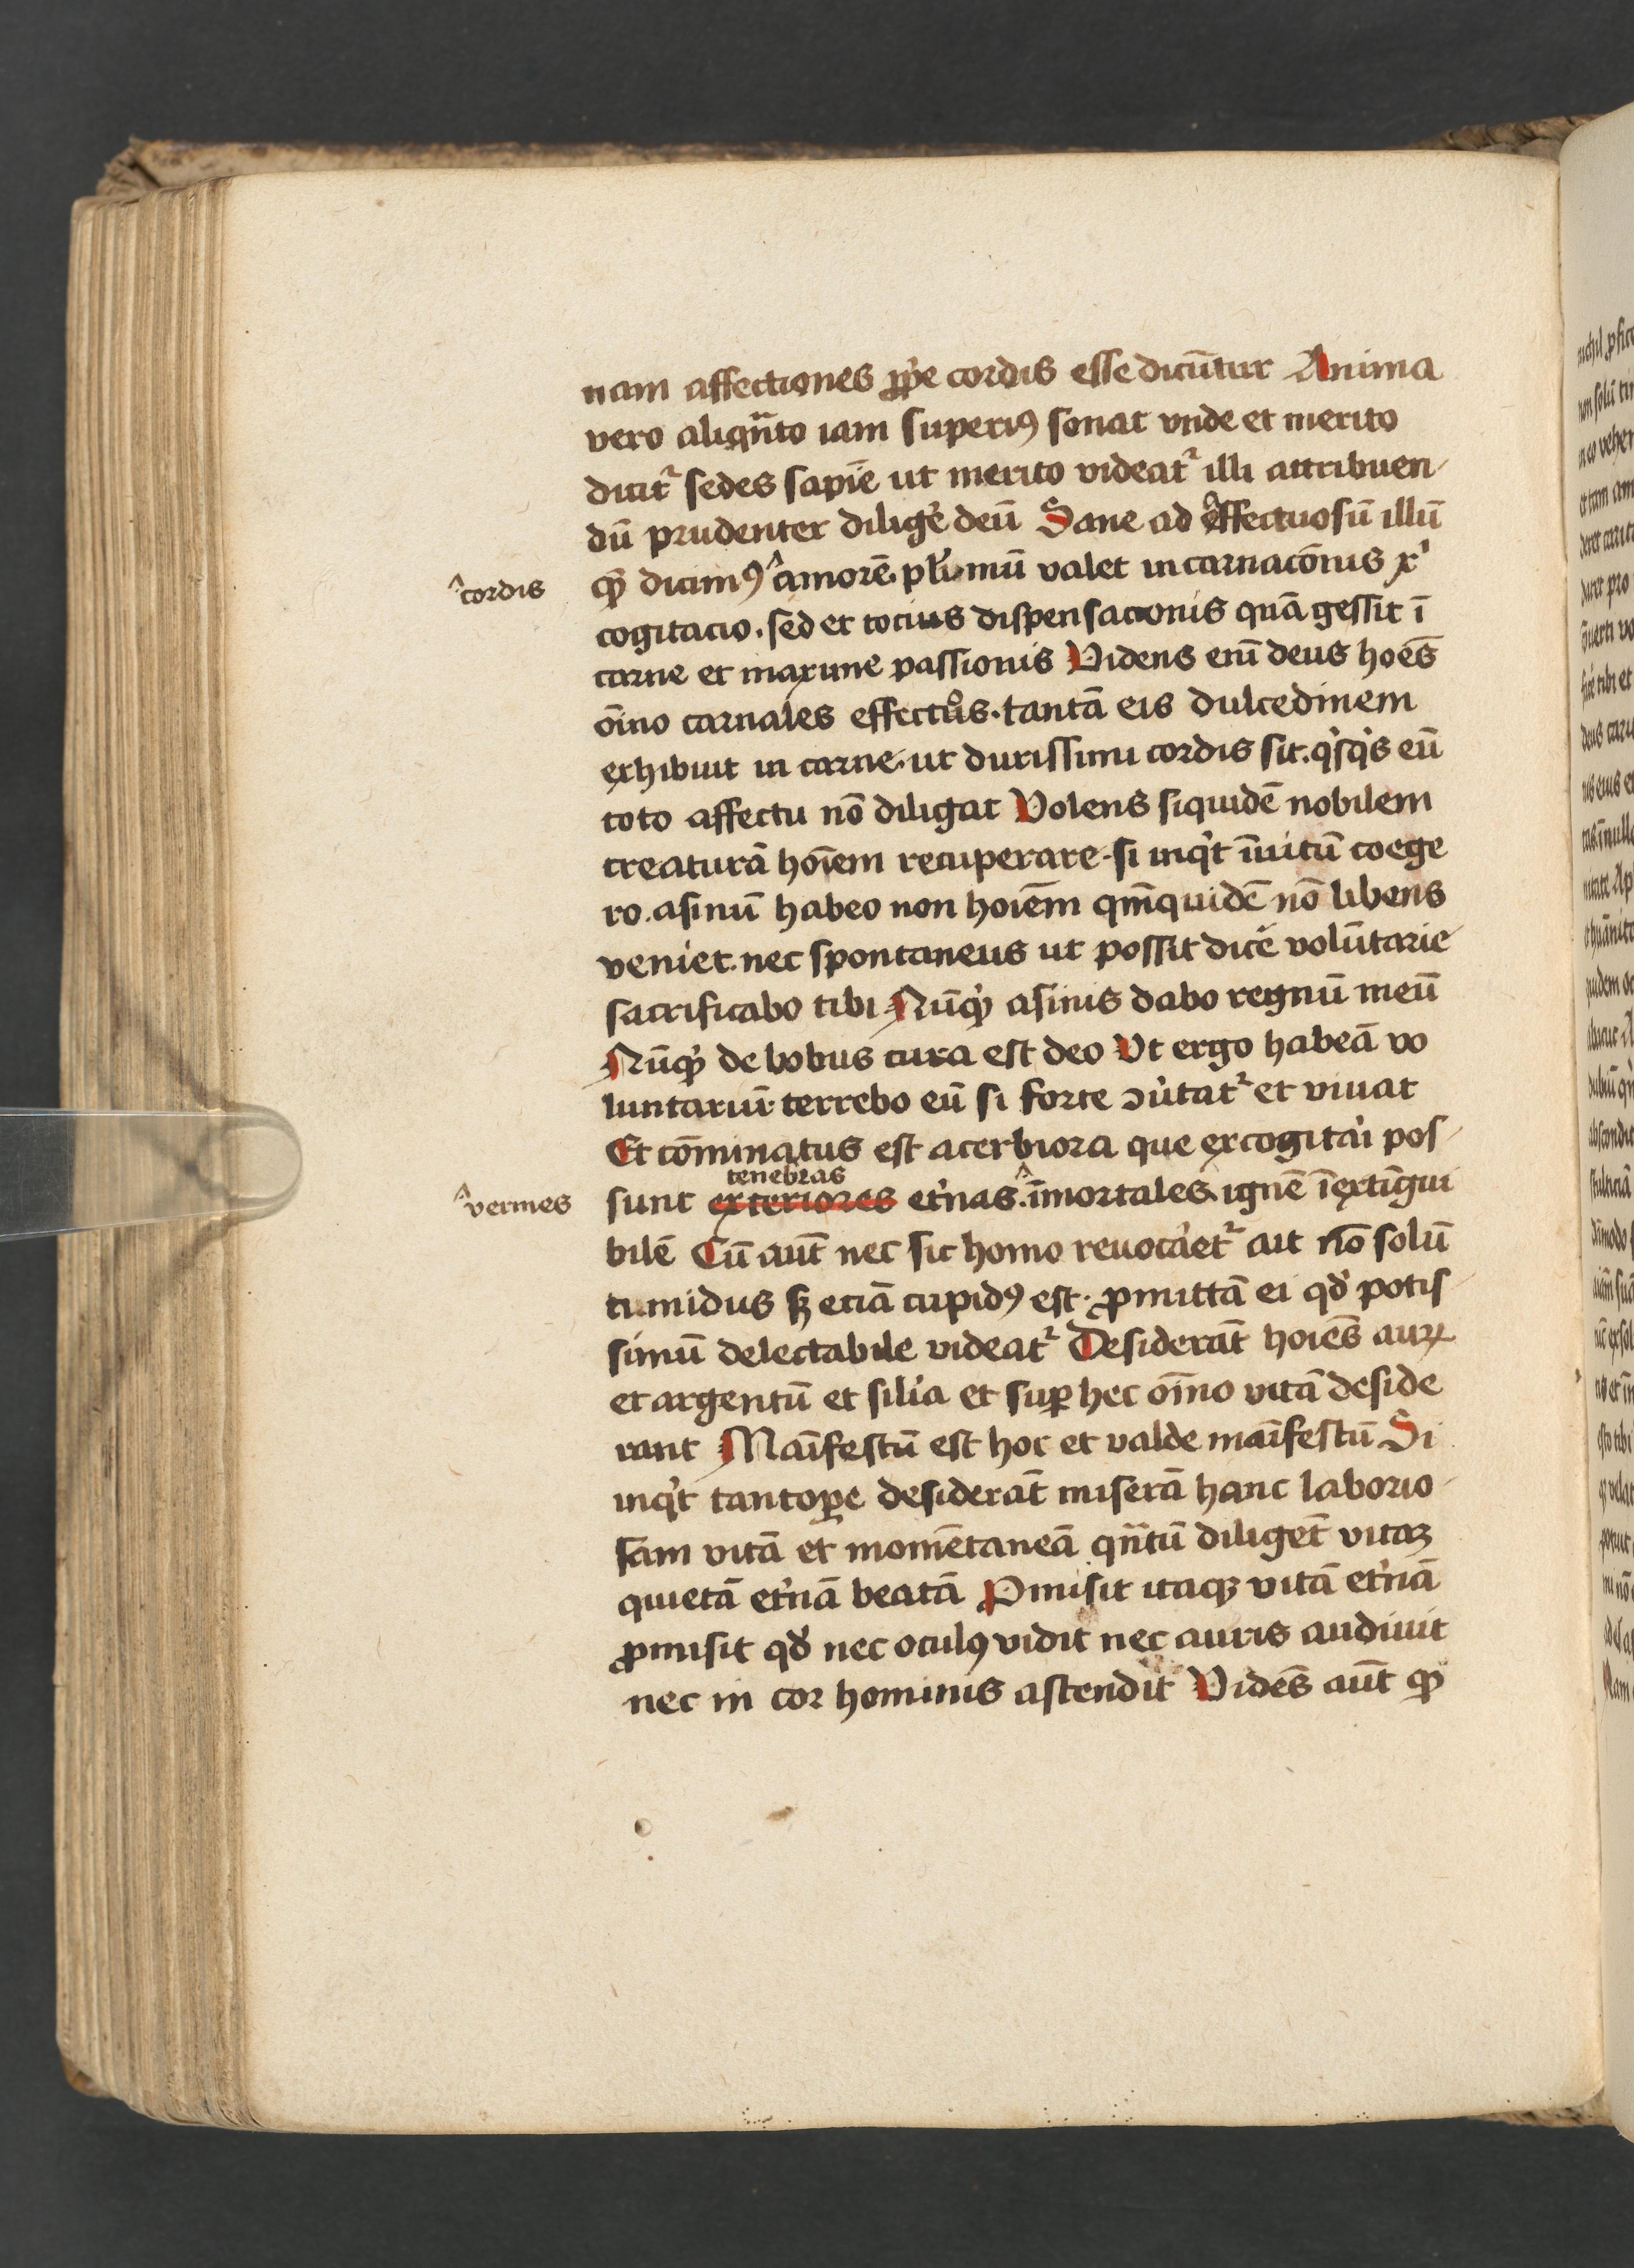 nam affectiones ꝓp̾e cordis esse dicūtur Anima
vero aliqn̄to iam superiꝰ sonat vnde et merito
dicit᷑ sedes sapīe ut merito videat᷑ illi attribuen
dū prudenter diligē deū Sane ad effectuosū illū
cordis
qͫ dicimꝰ amorē. plr̄imū valet incarnacōnis xͥ
cogitacio. sed et tocius dispensacionis quā gessit ī
carne et maxime passionis Videns eni̅ deus hoēs
oīno carnales effectus. tantā eis dulcedinem
exhibuit in carne. ut durissimi cordis sit. qͥsqͥs eū
toto affectu nō diligat Volens siquidē nobilem
creaturā hoīem recuperare. si inqͥt īuitū coege
ro. asinū habeo non hoīem qm̄quidē nō libens
veniet. nec spontaneus ut possit dicē volūtarie
sacrificabo tibi Nūqͥd asinis dabo regnū meū
Nūqͥd de bobus cura est deo Vt ergo habeā vo
luntariū terrebo eū si forte ↄu̾tat᷑ et viuat
Et cōminatus est acerbiora que excogita̾i pos
tenebras
vermes
sunt exteriores et̾nas. īmortales. ignē īextīgui
bilē Cū aut̄ nec sic homo reuoca̾et᷑ ait nō solū
tumidus sꝫ eciā cupidꝰ est. ꝓmittā ei qd̾ potis
simū delectabile videat᷑ Desiderāt hoīes auꝝ
et argentū et sili̾a et suꝑ hec oīno vitā deside
rant Māifestū est hoc et valde māifestū Si
inqͥt tantoꝑe desiderāt miserā hanc laborio
sam vitā et momētaneā qn̄tū diligēt vitaꝫ
quietā et̾nā beatā Ꝓmisit itaqꝫ vitā et̾nā
ꝓmisit qd̾ nec oculꝰ vidit nec auris audiuit
nec in cor hominis ascendit Vidēs aut̄ ꝙ